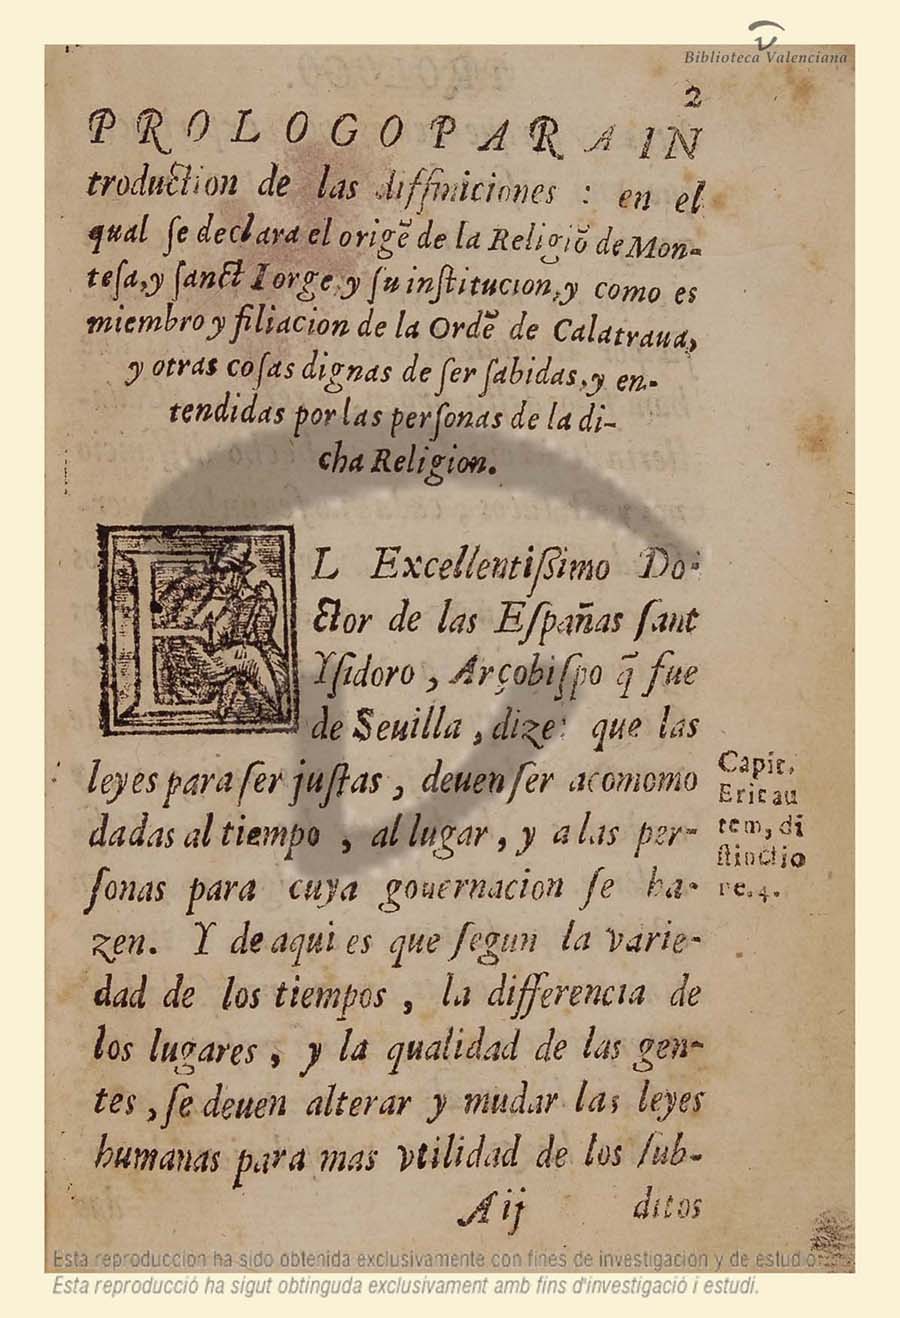 Biblioteca Valenciana
2
PROLOGO PARA IN
troduction de las diffiniciones : en el
qual ſe declara el origẽ de la Religiõ de Mon-
teſa, y ſanct Iorge, y ſu inſtitucion, y como es
miembro y filiacion de la Ordẽ de Calatraua,
y otras coſas dignas de ſer ſabidas, y en-
tendidas por las perſonas de la di-
cha Religion.
EL Excellentiſsimo Do-
ctor de las Eſpañas ſant
Yſidoro , Arçobiſpo q̃ fue
de Seuilla , dize: que las
leyes para ſer juſtas , deuen ſer acomomo
dadas al tiempo , al lugar , y a las per-
ſonas para cuya gouernacion ſe ha-
zen. Y de aqui es que ſegun la varie-
dad de los tiempos , la differencia de
los lugares , y la qualidad de las gen-
tes , ſe deuen alterar y mudar las leyes
humanas para mas vtilidad de los ſub-
A ij ditos
Capit.
Erit au
tem, di
ſtinctio
ne.4.
Esta reproducción ha sido obtenida exclusivamente con fines de investigación y de estudio.
Esta reproducció ha sigut obtinguda exclusivament amb fins d'investigació i estudi.